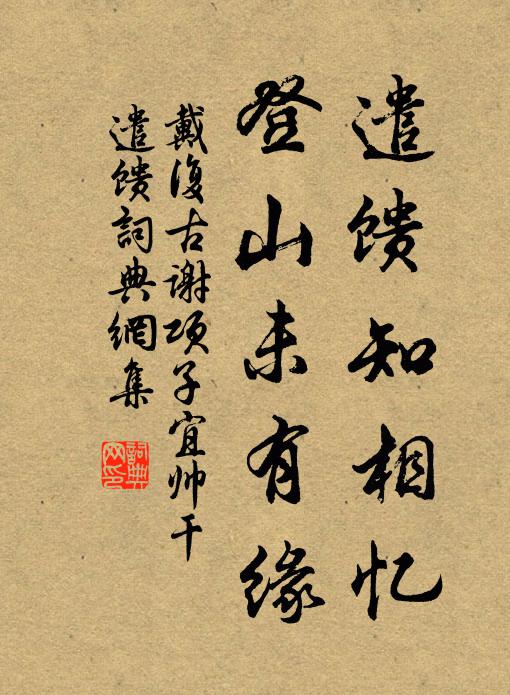 遣馈知相忆
登山未有缘
戴復古谢项子宜帅干
遣馈詞典網集
詞典
网印